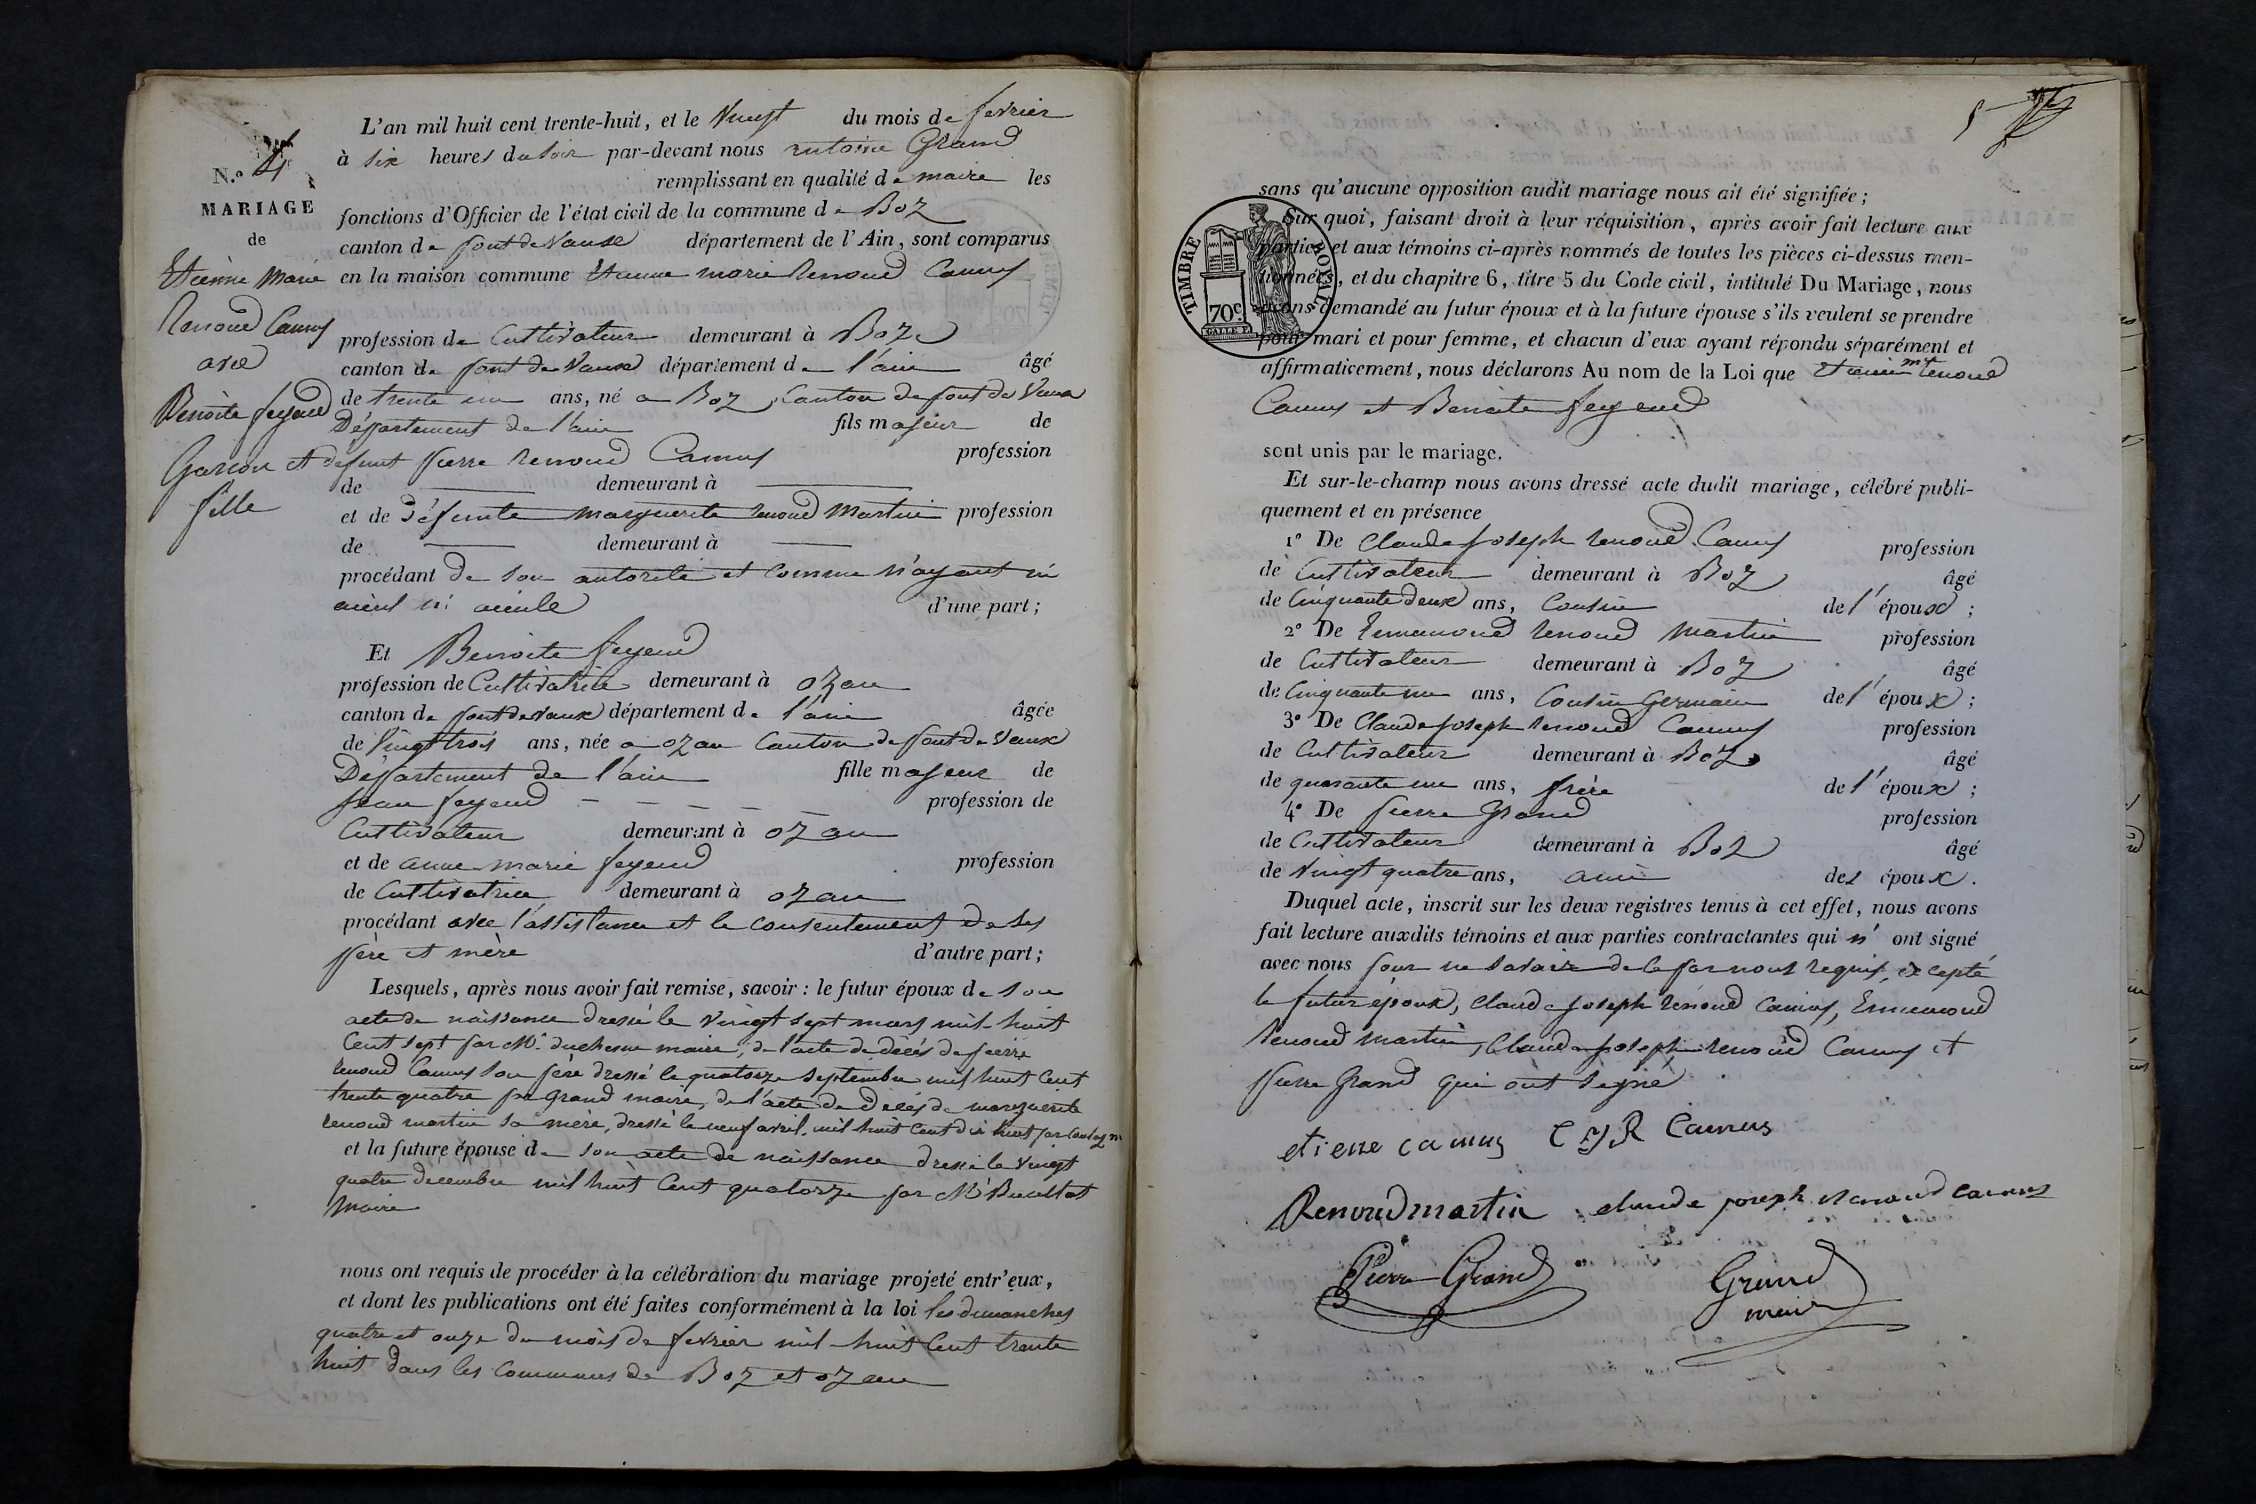 N.o 4
MARIAGE
de
Etienne Marie
Renoud Camus
avec
Benoite feyeud
Garcon et
fille
L'an mil huit cent trente-huit, et le Vingt du mois de fevrier
à six heures du soir par-devant nous antoine Grand
remplissant en qualité de maire les
fonctions d'Officier de l'état civil de la commune de Boz
canton de pont de Vaux département de l'Ain, sont comparus
en la maison commune Etienne marie Renoud Camus
profession de Cultivateur demeurant à Boz
canton de pont de Vaux département de l'ain âgé
de trente un ans, né a Boz, Canton de pont de Vaux
Département de l'ain fils majeur de
defunt pierre renoud Camus profession
de demeurant à
et de Défunte marguerite renoud martin profession
de demeurant à
procédant de son autorité et comme n'ayant ni
aieul ni aieule d'une part;
Et Benoite feyeud
profession de Cultivatrice demeurant à ozan
canton de pont de vaux département de l'ain âgée
de Vingt trois ans, née a ozan Canton de pont de Vaux
Département de l'ain fille majeur de
jean feyeud profession de
Cultivateur demeurant à ozan
et de anne marie feyeud profession
de Cultivatrice demeurant à ozan
procédant avec l'assistance et le consentement de ses
père et mère d'autre part;
Lesquels, après nous avoir fait remise, savoir: le futur époux de son
acte de naissance dressé le Vingt sept mars mil-huit
Cent sept par Mr. duchesne maire, de l'acte de décés de pierre
renoud Camus son père dressé le quatorze septembre mil huit Cent
trente quatre par Grand maire, de l'acte de décés de marguerite
renoud martin sa mère, dressé le neuf avril, mil huit Cent dix huit par
et la future épouse de son acte de naissance dressé le Vingt
quatre decembre mil huit Cent quatorze par Mr
maire
nous ont requis de procéder à la célébration du mariage projeté entr'eux,
et dont les publications ont été faites conformément à la loi les dimanches
quatre et onze du mois de fevrier mil-huit Cent trente
huit dans les communes de Boz et ozan
5
TIMBRE ROYAL
70c.
sans qu'aucune opposition audit mariage nous ait été signifiée;
Sur quoi, faisant droit à leur réquisition, après avoir fait lecture aux
parties et aux témoins ci-après nommés de toutes les pièces ci-dessus men-
tionnées, et du chapitre 6, titre 5 du Code civil, intitulé Du Mariage, nous
avons demandé au futur époux et à la future épouse s'ils veulent se prendre
pour mari et pour femme, et chacun d'eux ayant répondu séparément et
affirmativement, nous déclarons Au nom de la Loi que Etienne mie renoud
Camus et Benoite feyeud
sont unis par le mariage.
Et sur-le-champ nous avons dressé acte dudit mariage, célébré publi-
quement et en présence
1o De Claude joseph renoud Camus profession
de Cultivateur demeurant à Boz âgé
de Cinquante deux ans, Cousin de l'époux;
2o De Ennemond renoud martin profession
de Cultivateur demeurant à Boz âgé
de Cinquante un ans, Cousin Germain de l'époux;
3o De Claude joseph renoud Camus profession
de Cultivateur demeurant à Boz âgé
de quarante un ans, frère de l'époux;
4o De pierre Grand profession
de Cultivateur demeurant à Boz âgé
de Vingt quatre ans, ami des époux.
Duquel acte, inscrit sur les deux registres tenus à cet effet, nous avons
fait lecture auxdits témoins et aux parties contractantes qui n'ont signé
avec nous pour ne savoir de ce par nous requis, excepté
le futur époux, Claude joseph renoud Camus, Ennemond
renoud martin, Claude joseph renoud Camus et
pierre Grand qui ont signé
etiene camus C J R Camus
Renoud martin claude joseph renoud camus
Pierre Grand Grand
maire